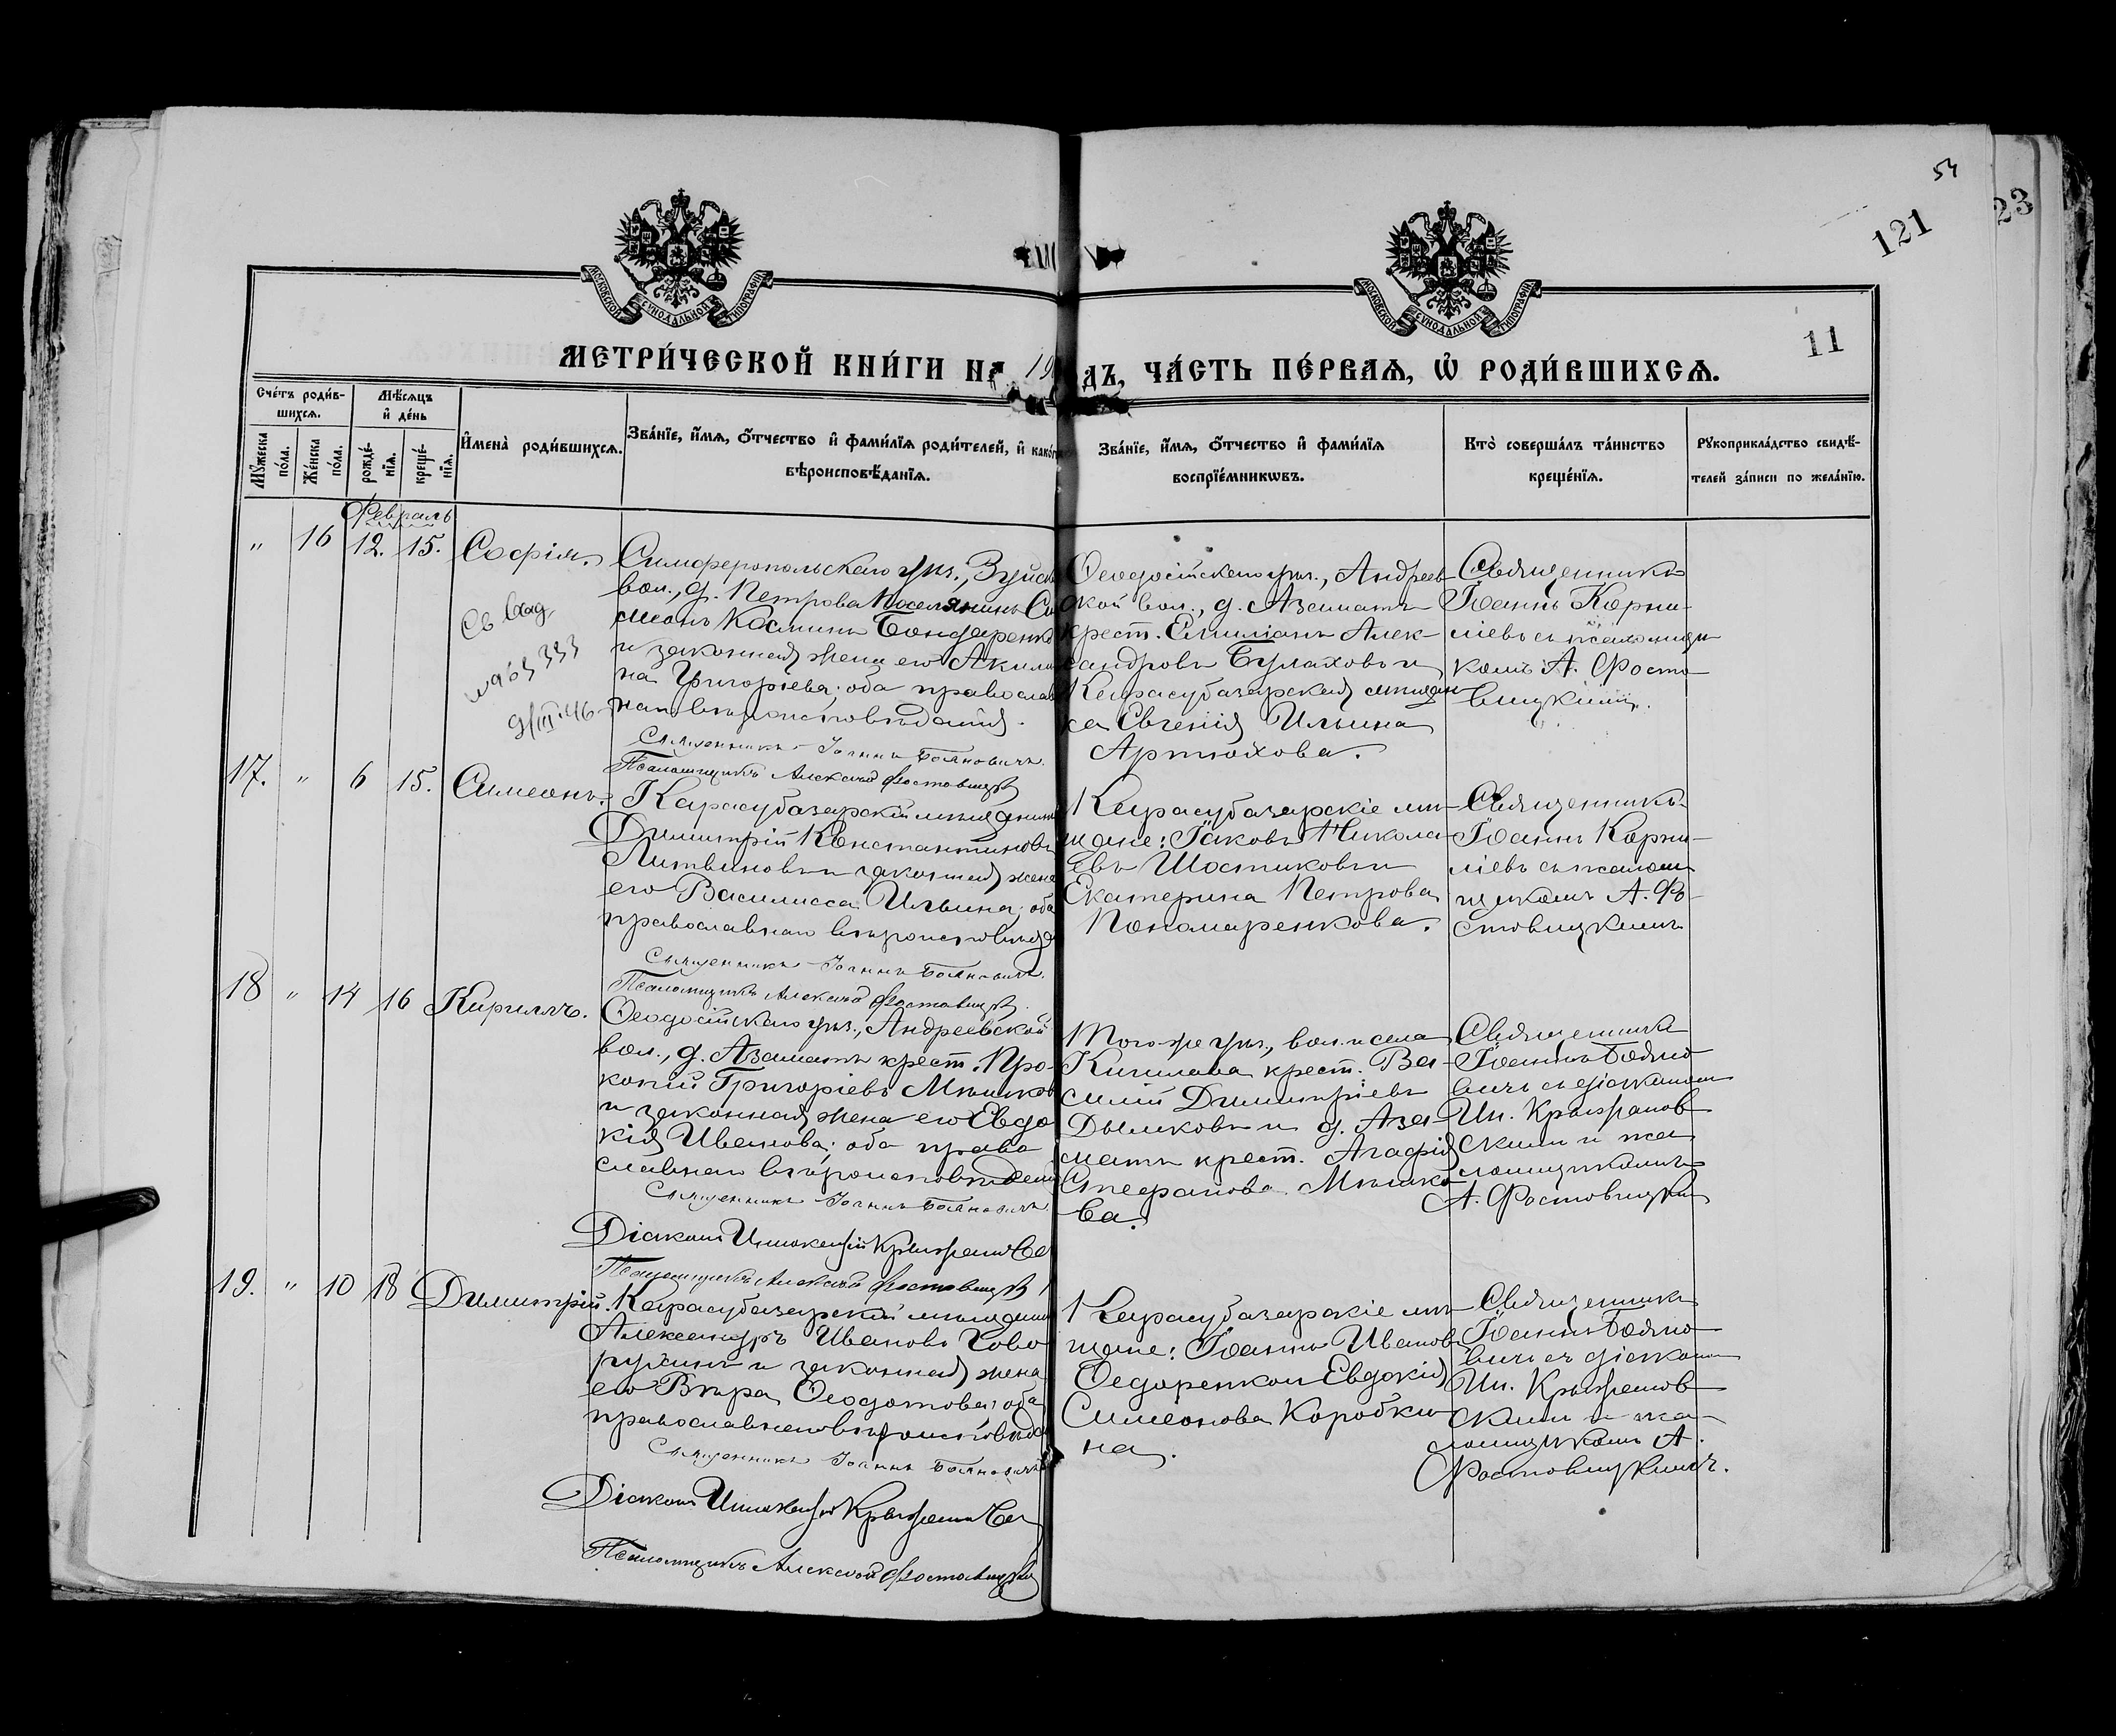 54
121
23
11
МОСКОВСКОЙ СѴНОДАЛЬНОЙ ТИПОГРАФІИ
МОСКОВСКОЙ СѴНОДАЛЬНОЙ ТИПОГРАФІИ
МЕТРИ́ЧЕСКОЙ КНИ́ГИ НА 19 ДЪ, ЧА́СТЬ ПЕ́РВАѦ, Ѽ РОДИ́ВШИХСѦ.
Сче́тъ роди́в-
шихсѧ.
Мѣ́сѧцъ
и҆ де́нь
Мꙋ́жеска
по́ла.
Же́нска
по́ла.
рожде́-
нїѧ.
креще́-
нїѧ.
И҆мена̀ роди́вшихсѧ.
Зва́нїе, и҆́мѧ, ѻ҆́тчество и҆ фами́лїѧ роди́телей, и҆ како́г
вѣроисповѣ́данїѧ.
Зва́нїе, и҆́мѧ, ѻ҆́тчество и҆ фами́лїѧ
воспрїе́мникѡвъ.
Кто̀ соверша́лъ та́инство
креще́нїѧ.
Рꙋкоприкла́дство свидѣ́-
телей за́писи по жела́нїю.
Февраль
" 16 12. 15. Софія.
Симферопольскаго уѣз., Зуйск
вол., д. Петрова поселянинъ Си
меонъ Косминъ Бондаренко
и законная жена его Акили
на Григорьева; оба православ
наго вѣроисповѣданія.
Священникъ Іоаннъ Бояновичъ.
Псаломщикъ Алексей Фостовицкій
Св. выд.
333
9/III-46
Ѳеодосійскаго уѣз., Андреев
ской вол., д. Азаматъ
крест. Емиліанъ Алек-
сандровъ Булаховъ и
Карасубазарская мѣщан
ка Евгенія Ильина
Артюхова.
Священникъ
Іоаннъ Корни-
ліевъ съ псаломщи
комъ А. Фосто-
вицкимъ.
17. " 6 15. Симеонъ.
Карасубазарскій мѣщанинъ
Димитрій Константиновъ
Литвиновъ и законная жена
его Василисса Ильина; оба
православнаго вѣроисповѣда
Священникъ Іоаннъ Бояновичъ.
Псаломщикъ Алексей Фостовицкій
Карасубазарскіе мѣ-
щане: Іаковъ Никола-
евъ Шостиковъ и
Екатерина Петрова
Пономаренкова.
Священникъ
Іоаннъ Корни-
ліевъ съ псалом
щикомъ А. Фо-
стовицкимъ
18 " 14 16 Кириллъ.
Ѳеодосійскаго уѣз., Андреевской
вол., д. Азаматъ крест. Про-
копій Григоріевъ Мѣшков
и законная жена его Евдо
кія Иванова; оба право
славнаго вѣроисповѣдані
Священникъ Іоаннъ Бояновичъ
Діаконъ Иннокентій
Псаломщикъ Алексей Фостовицкій
Того-же уѣз., вол. и села
крест. Ва-
силій Димитріевъ
Дымковъ и д. Аза-
матъ крест. Агафія
Стефанова Мѣшко
ва.
Священникъ
Іоаннъ Бояно
вичъ съ діакономъ
Ин.
скимъ и пса
ломщикомъ
А. Фостовицким
19. " 10 18 Димитрій.
Карасубазарскій мѣщанин
Александръ Ивановъ Гово
рухинъ и законная жена
его Вѣра Ѳеодотова; оба
православнаго вѣроисповѣда
Священникъ Іоаннъ Бояновичъ
Діаконъ Иннокентій
Псаломщикъ Алексей Фостовицкій
Карасубазарскіе мѣ-
щане: Іоаннъ Иванов
Ѳедоренко и Евдокія
Симеонова Коробки-
на.
Священникъ
Іоаннъ Бояно
вичъ съ діакономъ
Ин.
скимъ и пса-
ломщикомъ А.
Фостовицкимъ.